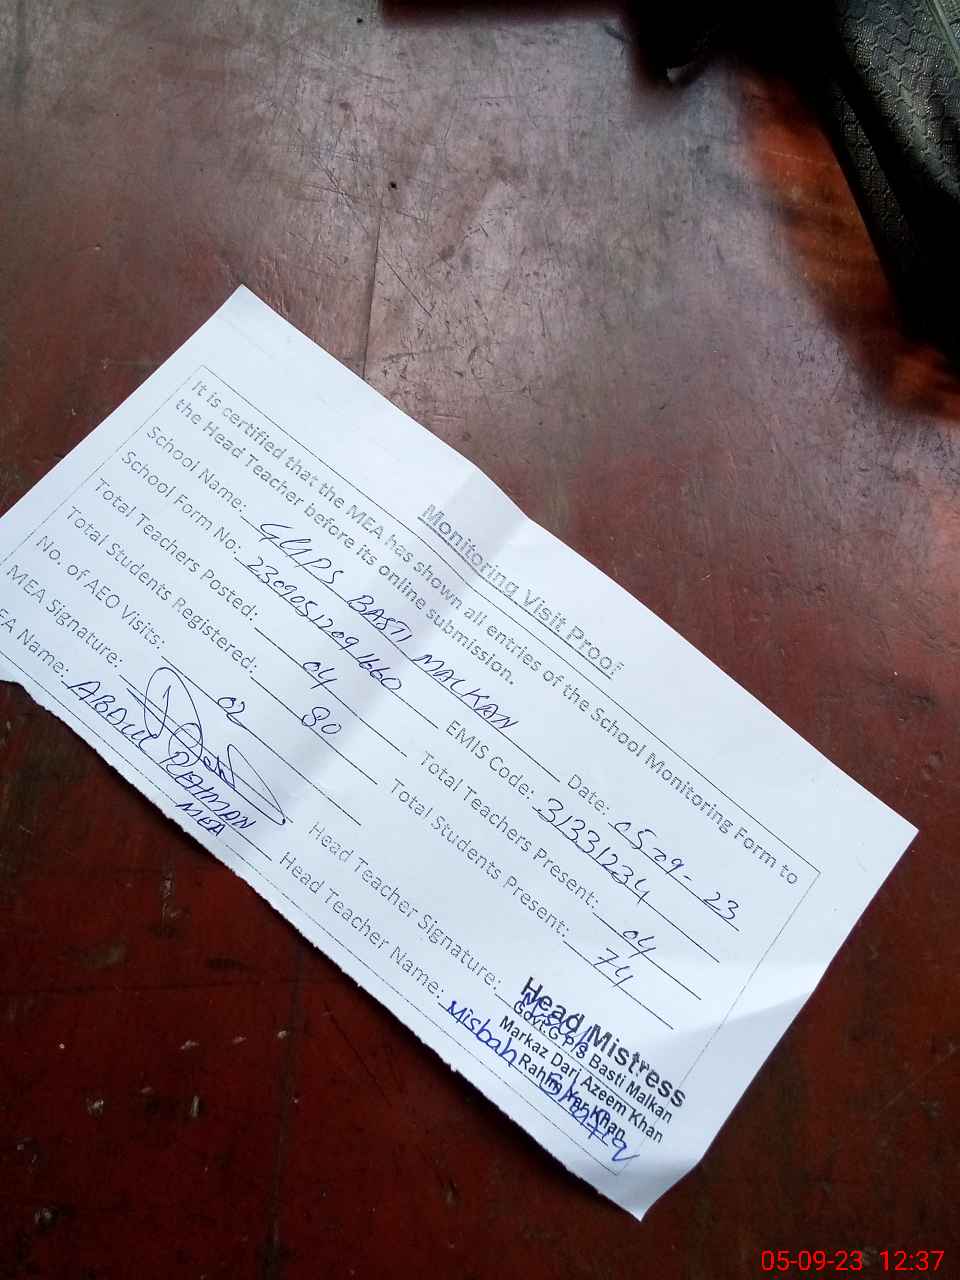 Monitoring Visit Proof
It is certified that the MEA has shown all entries of the School Monitoring Form to
the Head Teacher before its online submission.
School Name: GGPS BASTI MALKAN Date: 05-09-23
School Form No: 23090512091660 EMIS Code: 31331234
Total Teachers Posted: 04 Total Teachers Present: 04
Total Students Registered: 80 Total Students Present: 74
No. of AEO Visits: 02
MEA Signature: Head Teacher Signature:
EA Name: ABDUL REHMAN Head Teacher Name: Misbah
MEA
Head Mistress
Govt.G P/S Basti Malkan
Markaz Dari Azeem Khan
Rahim Yar Khan
05-09-23 12:37